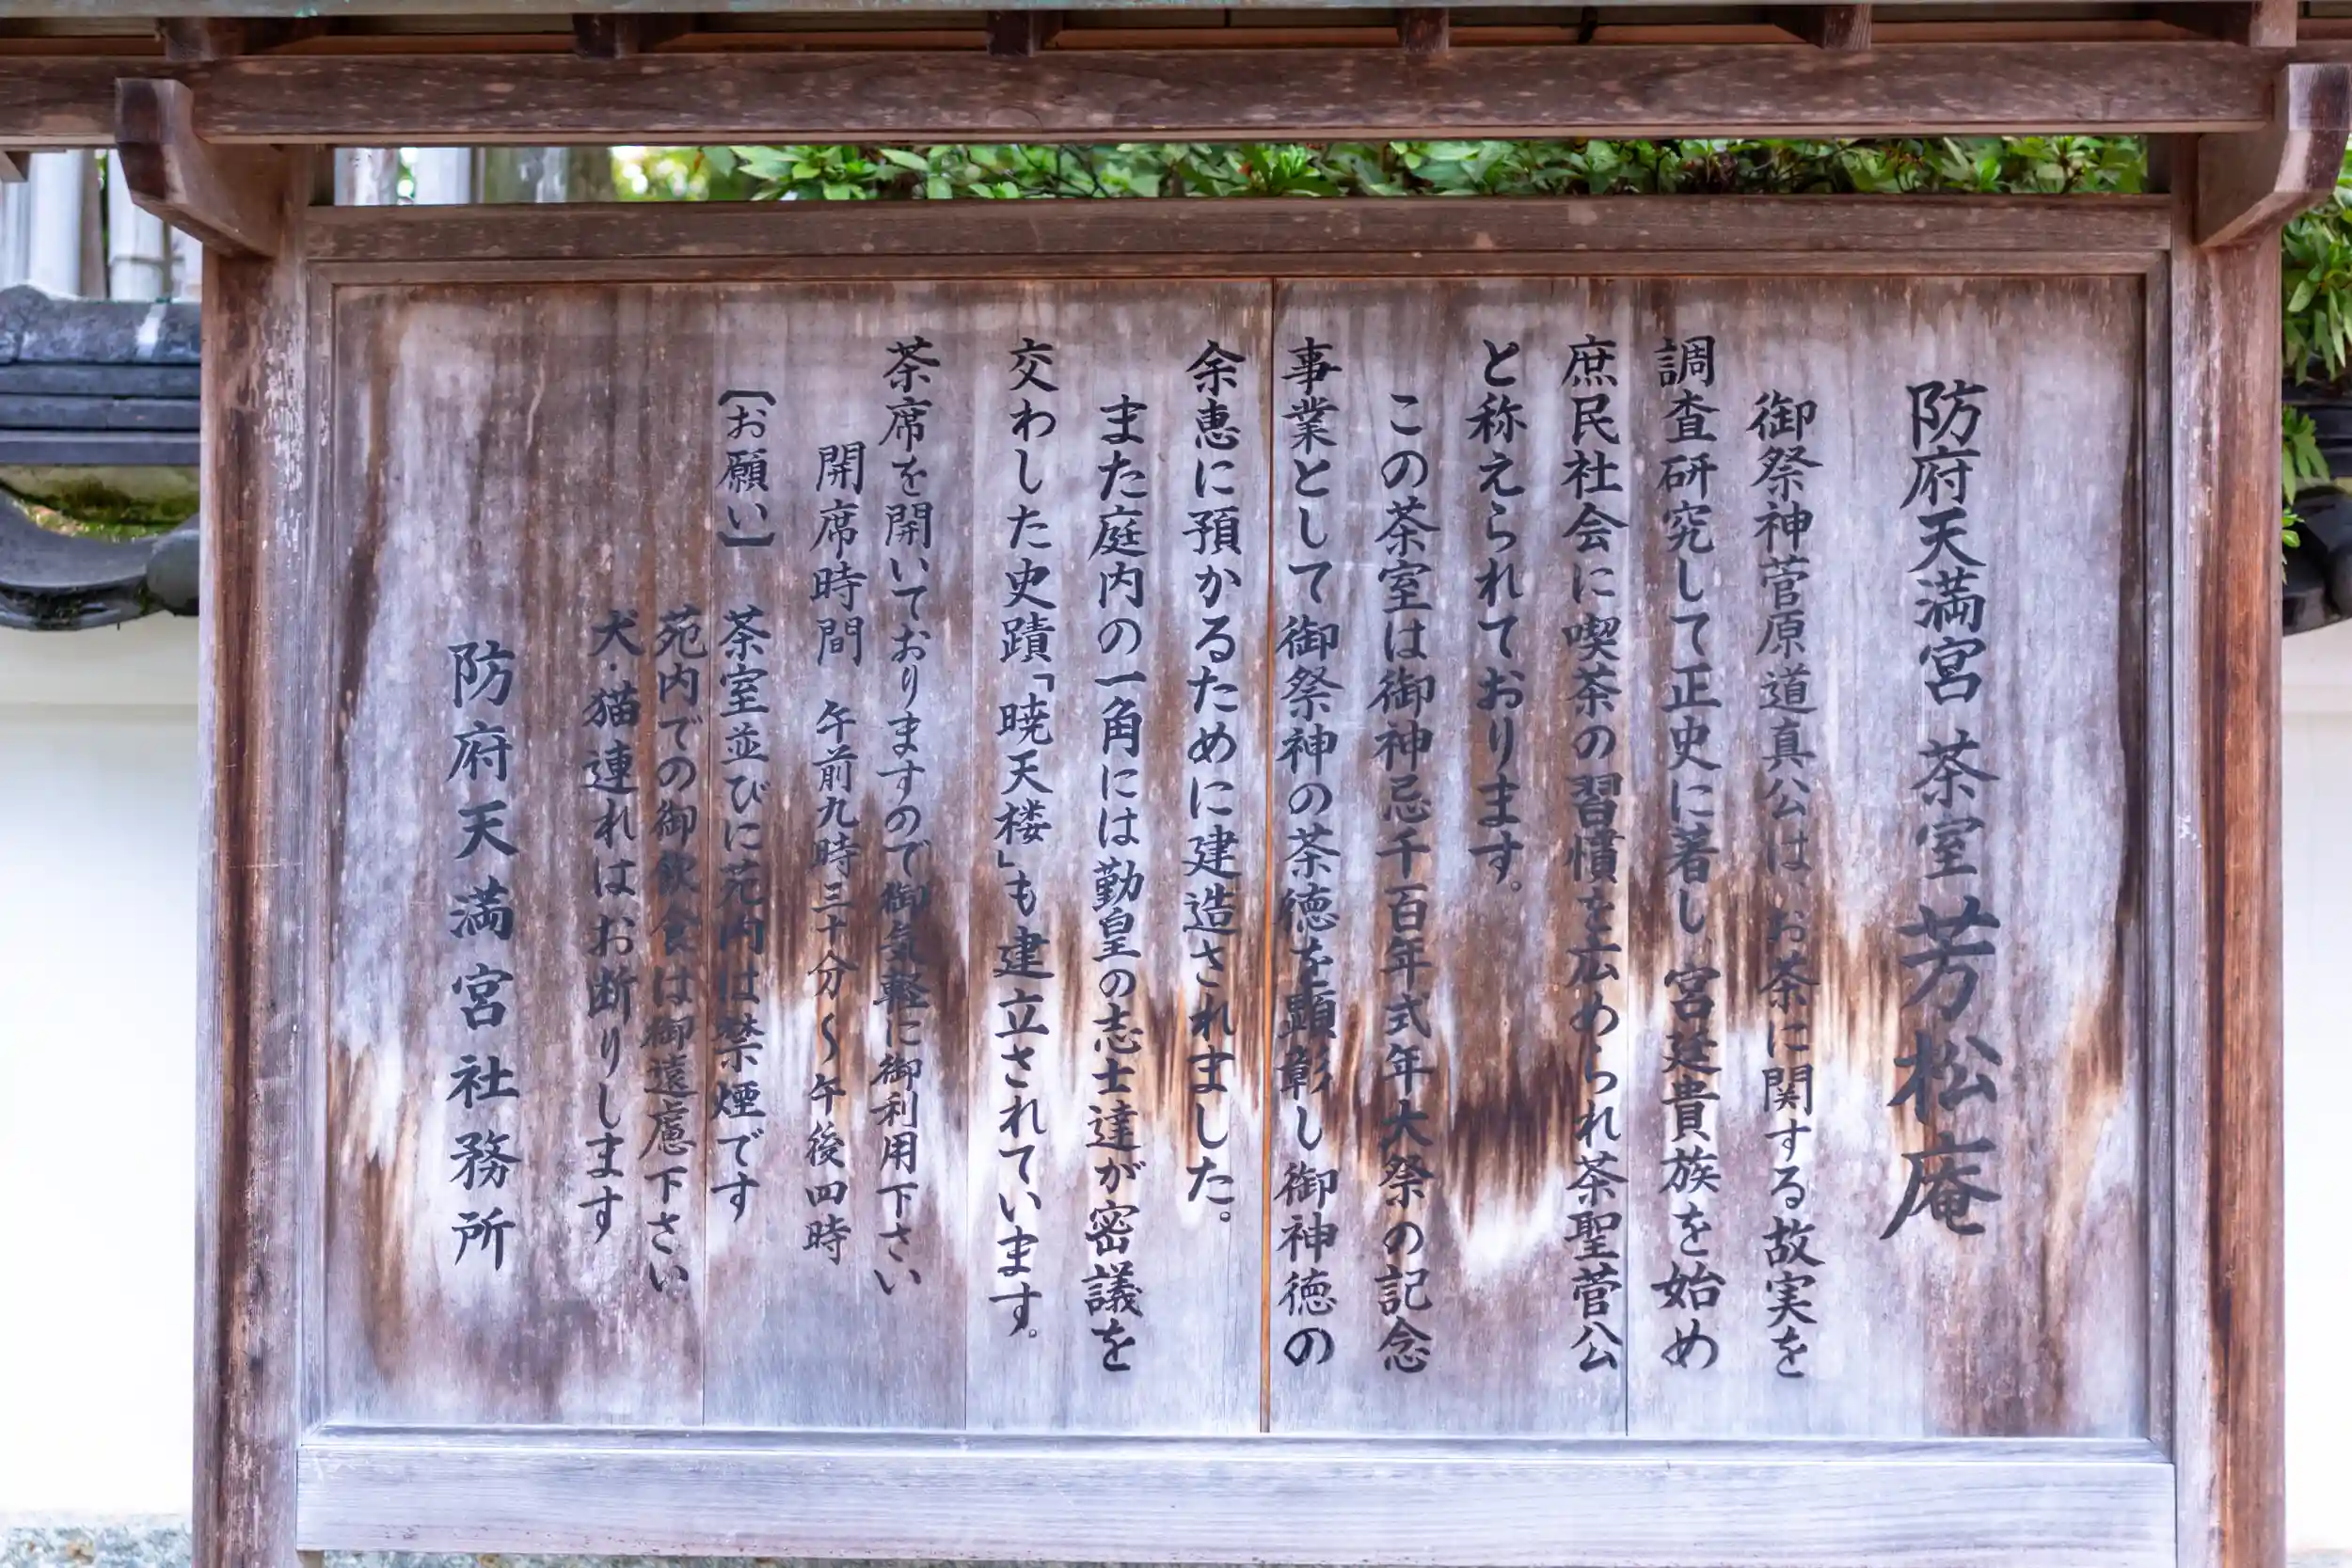 防府天満宮 茶室 芳松庵
御祭神菅原道真公は お茶に関する故実を
調査研究して正史に著し 宮廷貴族を始め
庶民社会に喫茶の習慣を広められ茶聖菅公
と称えられております。
この茶室は御神忌千百年式年大祭の記念
事業として御祭神の茶徳を顕彰し御神徳の
余恵に預かるために建造されました。
また庭内の一角には勤皇の志士達が密議を
交わした史蹟「暁天楼」も建立されています。
茶席を開いておりますので御気軽に御利用下さい
開席時間 午前九時三十分〜午後四時
〔お願い〕 茶室並びに苑内は禁煙です
苑内での御飲食は御遠慮下さい
犬・猫連れはお断りします
防府天満宮社務所